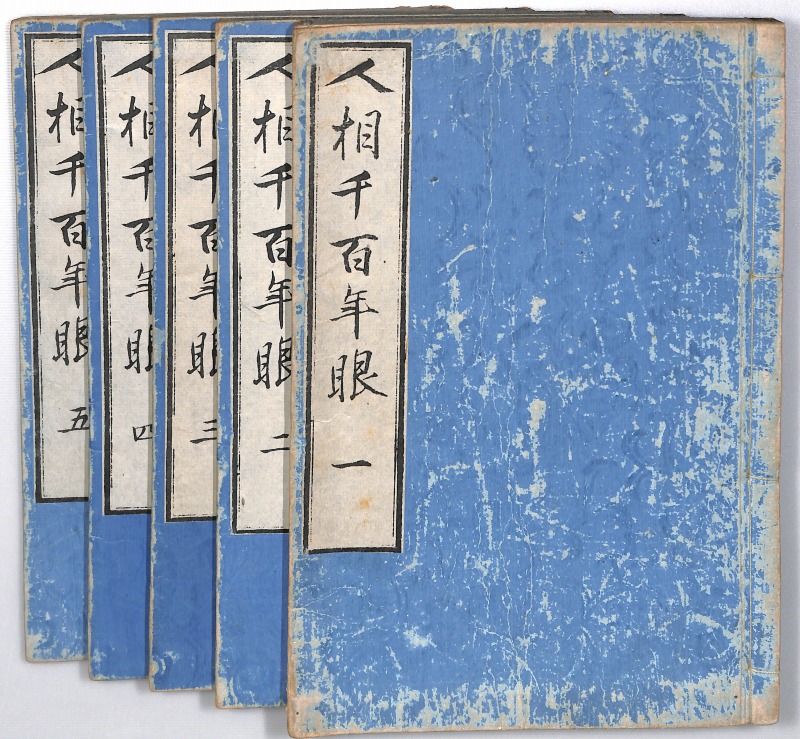 人相千百年眼 一
人相千百年眼 二
人相千百年眼 三
人相千百年眼 四
人相千百年眼 五